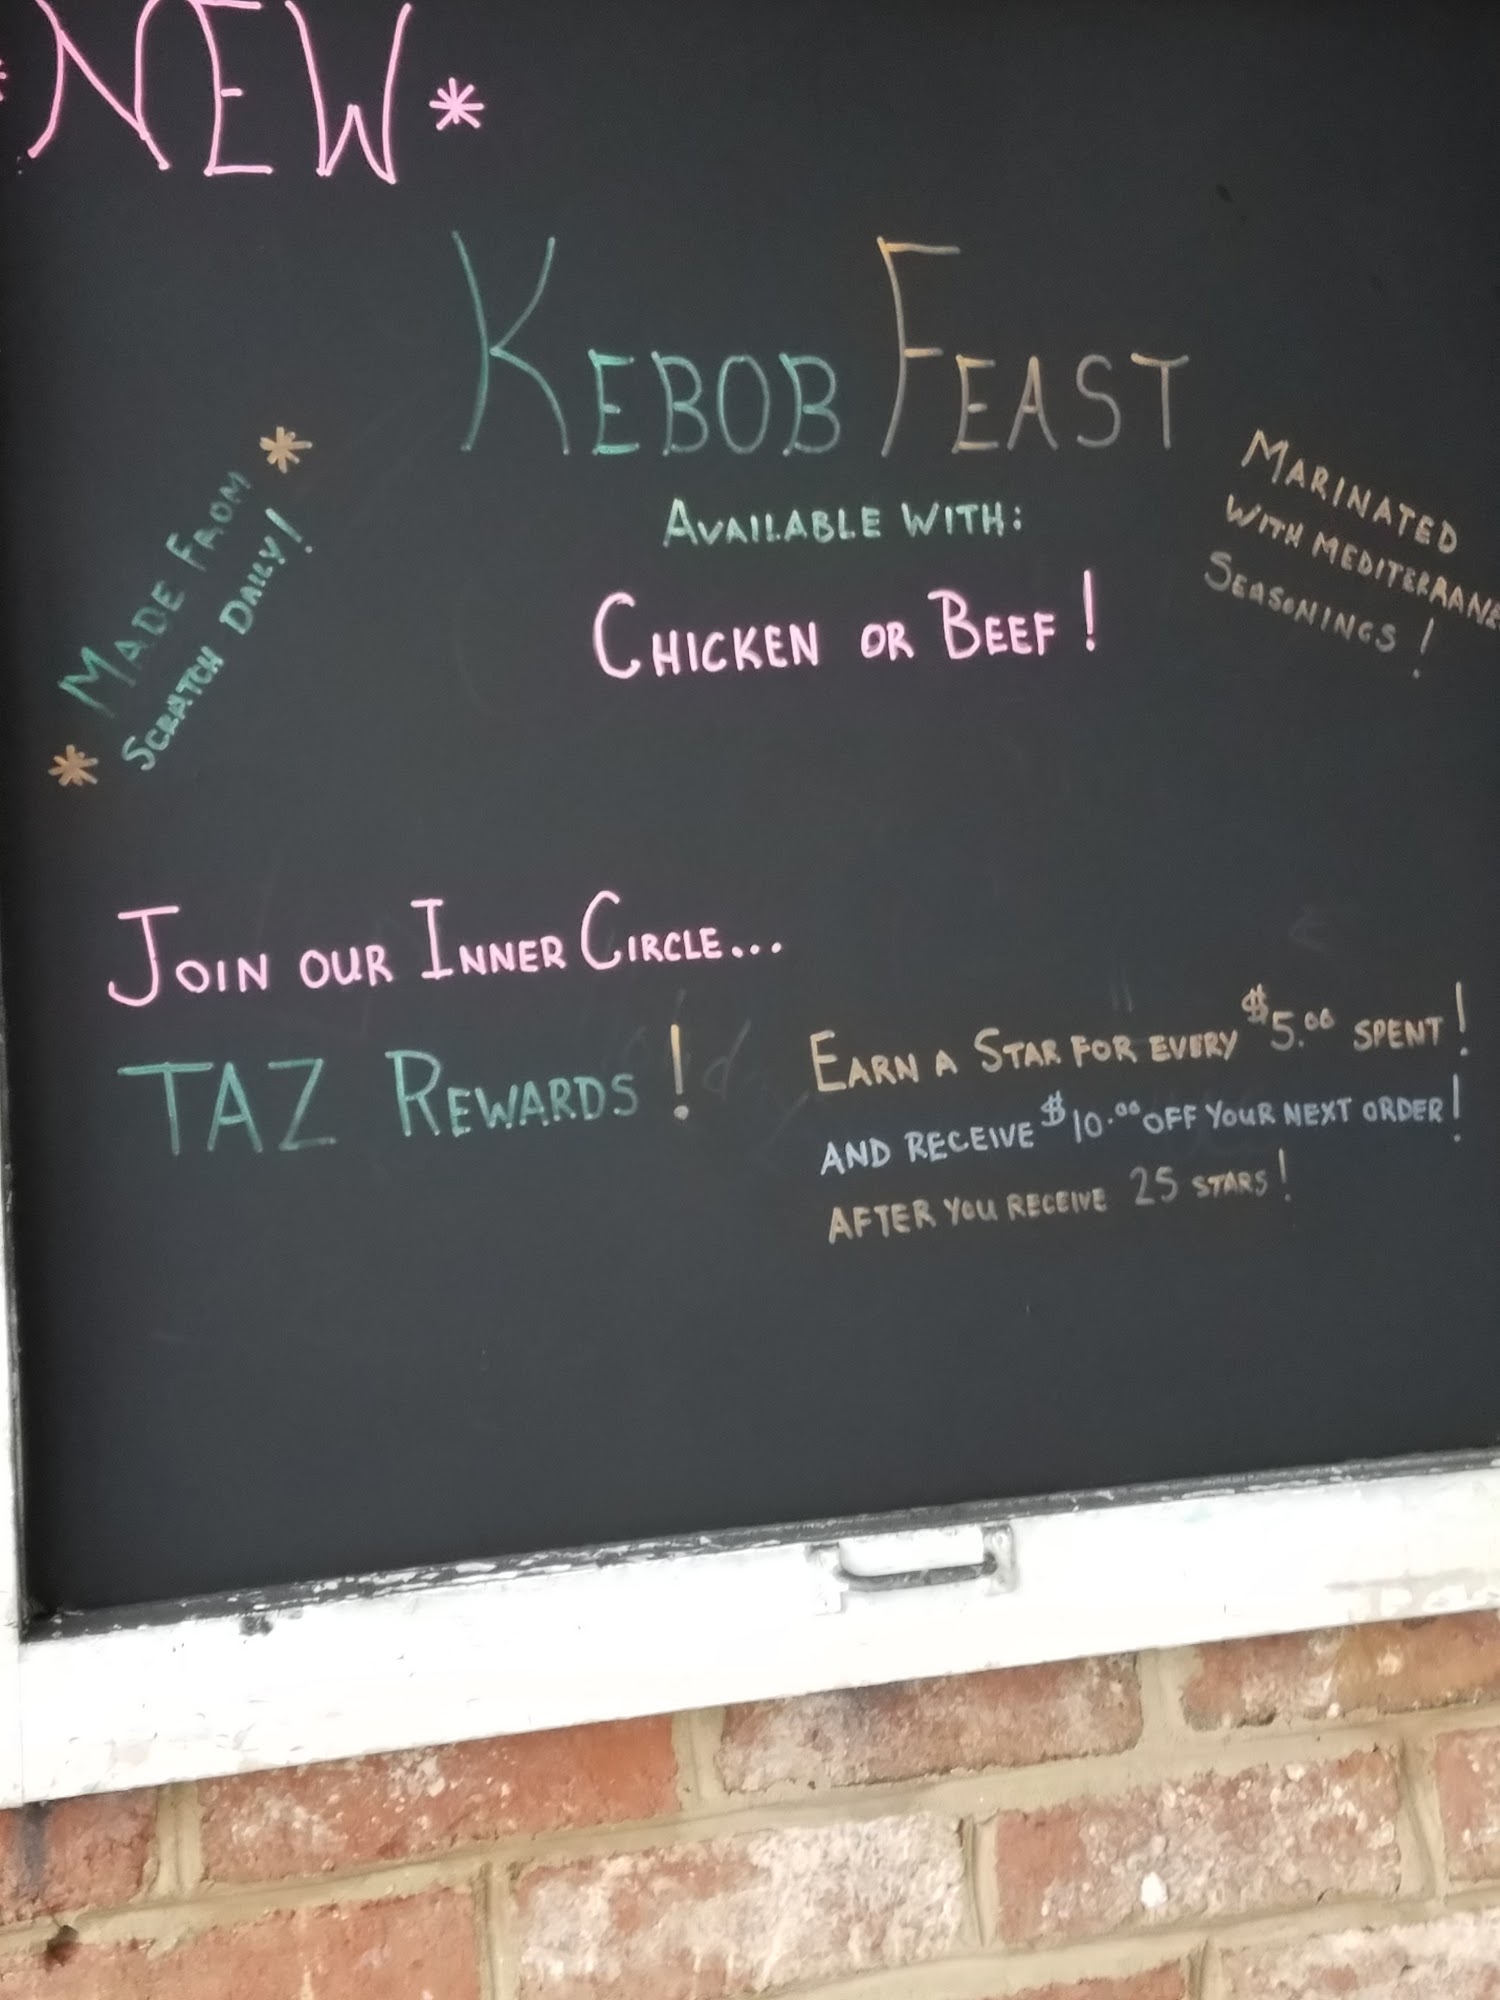 *NEW*
KEBOB FEAST
AVAILABLE WITH:
CHICKEN OR BEEF!
* MADE FROM *
SCRATCH DAILY!
MARINATED
WITH MEDITERRANE
SEASONINGS!
JOIN OUR INNER CIRCLE...
TAZ REWARDS!
EARN A STAR FOR EVERY $5.00 SPENT!
AND RECEIVE $10.00 OFF YOUR NEXT ORDER!
AFTER YOU RECEIVE 25 STARS!